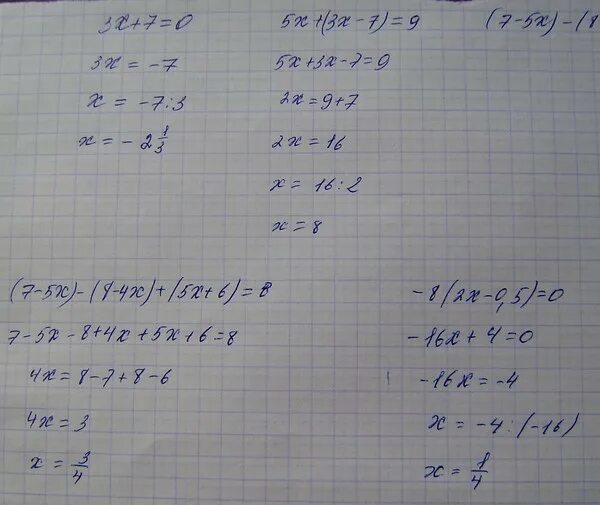 3x+7=0
3x = -7
x = -7:3
x = -2 1/3
5x+(3x-7)=9
5x+3x-7=9
2x=9+7
2x=16
x= 16:2
x=8
(7-5x)-(8
(7-5x)-(8-4x)+(5x+6)=8
7-5x-8+4x+5x+6=8
4x=8-7+8-6
4x=3
x = 3/4
-8(2x-0,5)=0
-16x+4=0
-16x=-4
x = -4:(-16)
x = 1/4